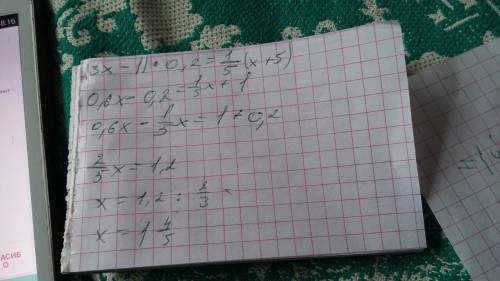 8:16
(3x - 1) · 0,2 = 1/5 (x + 5)
0,6x - 0,2 = 1/5 x + 1
0,6x - 1/5 x = 1 + 0,2
2/5 x = 1,2
x = 1,2 : 2/3 =
x = 1 4/5
АСИБ
О